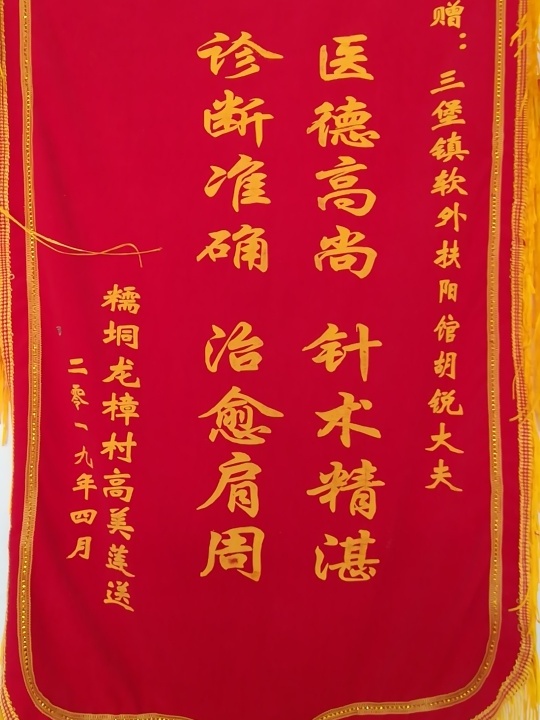 赠：三堡镇软外扶阳馆胡锐大夫
医德高尚 针术精湛
诊断准确 治愈肩周
糯垌龙樟村高美莲送
二零一九年四月